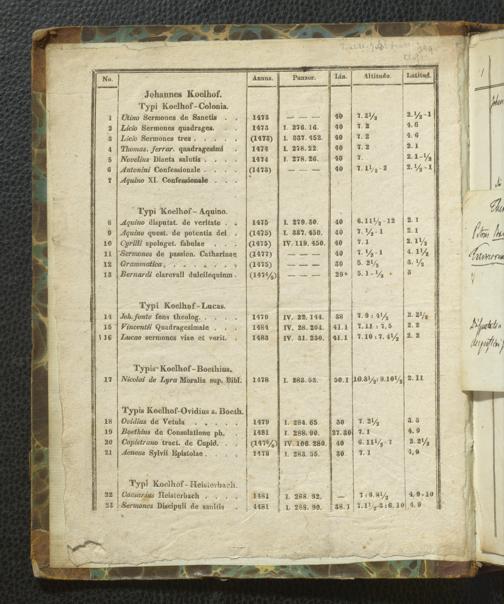 No. Annus. Panzer. Lin. Altitudo. Latitud.
Johannes Koelhof.
Typi Koelhof-Colonia.
1 Utino Sermones de Sanctis . . 1473 — — — 40 7.2½ 2.½-1
2 Licio Sermones quadrages. . . 1473 I. 276.16. 40 7.2 4.6
3 Licio Sermones tres . . . . . (1473) I. 337.452. 40 7.2 4.6
4 Thomas. ferrar. quadragesimi . 1474 I. 278.22. 40 7.2 2.1
5 Novelius Diaeta salutis . . . . 1474 I. 278.26. 40 7. 2.1-½
6 Antonini Confessionale . . . . (1473) — — — 40 7.1½-2 2.½-1
7 Aquino XI. Confessionale . . .
Typi Koelhof-Aquino.
8 Aquino disputat. de veritate . . 1475 I. 279.30. 40 6.11½-12 2.1
9 Aquino quest. de potentia dei . (1475) I. 337.450. 40 7.½-1 2.1
10 Cyrilli apologet. fabulae . . . (1475) IV. 119.450. 40 7.1 2.1½
11 Sermones de passion. Catharinae (1477) — — — 40 7.½-1 4.1½
12 Grammatica . . . . . . . . (1475) — — — 30 5.2½ 3.½
13 Bernardi claravall dulciloquium . — — — 5.1-½ 3
Typi Koelhof-Lucas.
14 Joh. fonte fons theolog. . . . . 1479 IV. 22.144. 38 7.9:4½ 2.2½
15 Vincentii Quadragesimale . . . 1484 IV. 28.204. 41.1 7.11:7.5 2.2
16 Lucae sermones viae et verit. . 1483 IV. 31.230. 41.1 7.10:7.4½ 2.2
Typis Koelhof-Boethius.
17 Nicolai de Lyra Moralia sup. Bibl. 1478 I. 283.53. 50.1 2.11
Typis Koelhof-Ovidius a. Boeth.
18 Ovidius de Vetula . . . . . 1479 I. 284.65. 30 7.2½ 3.3
19 Boethius de Consolatione ph. 1481 I. 288.90. 27.30 7.1 4.9
20 Capistrano tract. de Cupid. . . IV. 106.280. 40 6.11½-1 2.2½
21 Aeneas Sylvii Epistolae . . . . 1478 I. 283.55. 30 7.1 4.9
Typi Koelhof-Heisterbach.
22 Caesarius Heisterbach . . . . . 1481 I. 288.92. — 7:6.8½ 4.9-10
23 Sermones Discipuli de sanctis . 1481 I. 288.90. 38.1 7.1½-3:6.10 4.9